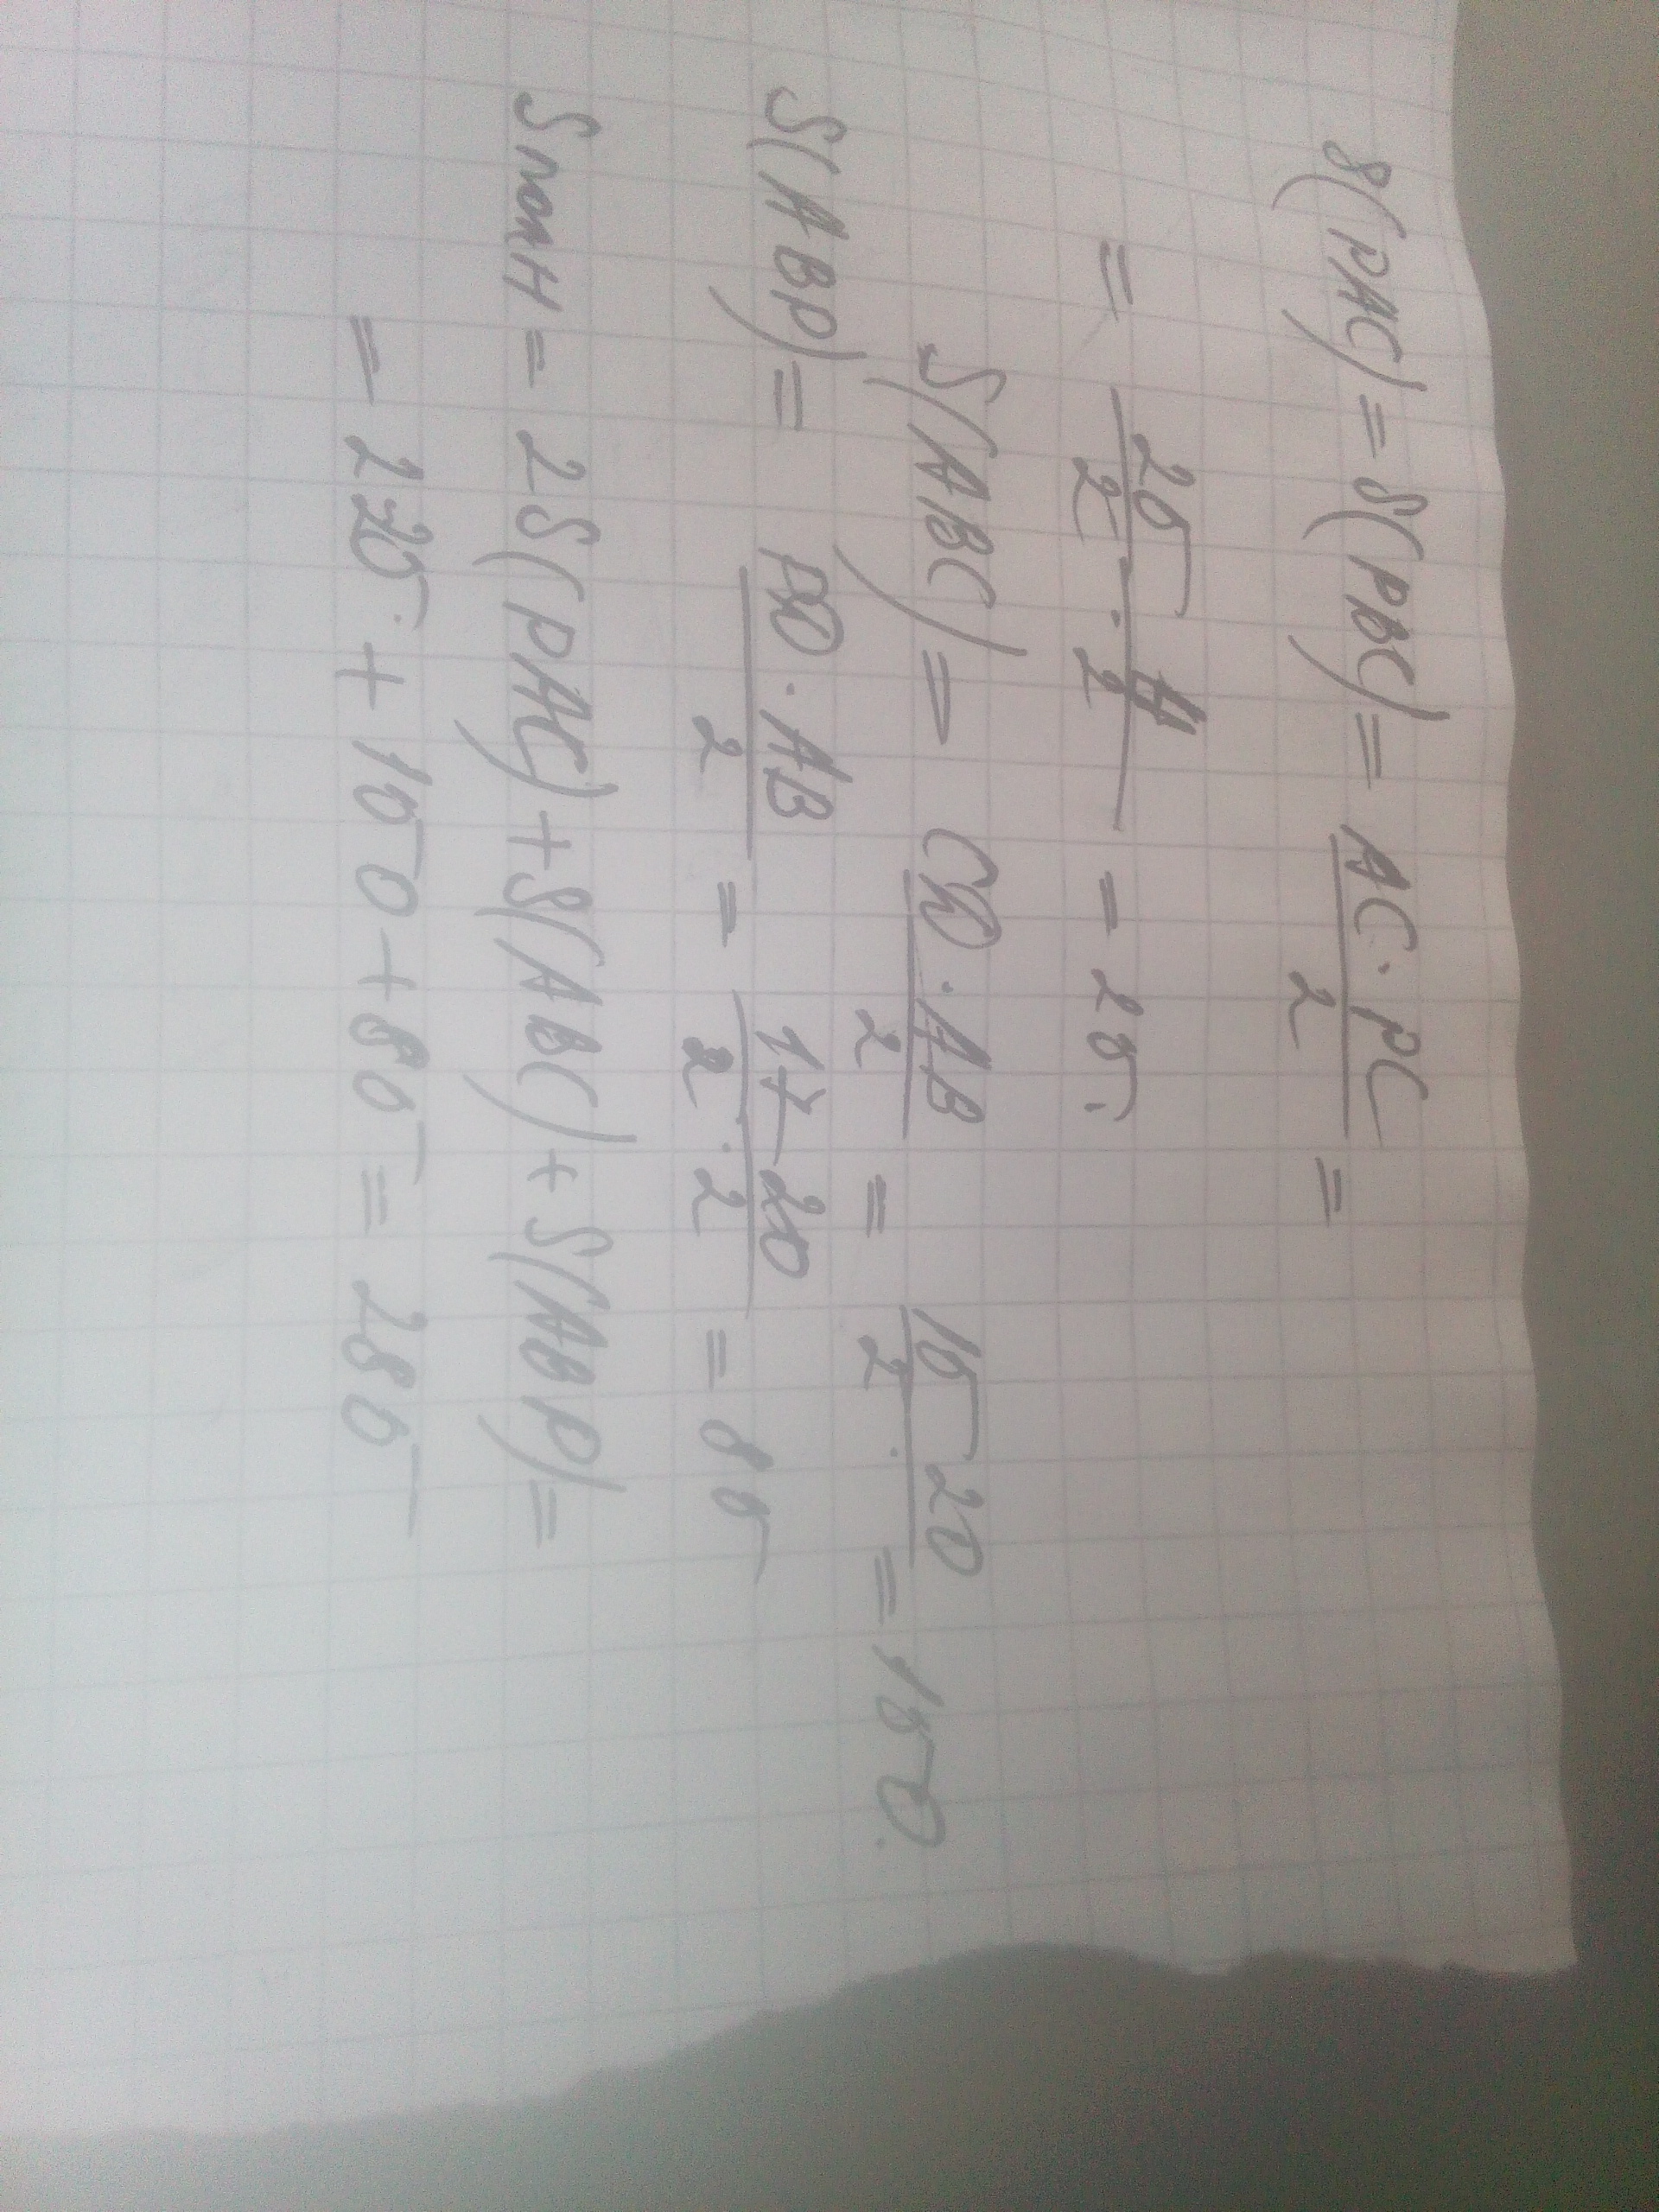 S(PAC) = S(PBC) = AC·PC/2 =
= 25/2 · 4/2 = 25;
S(ABC) = CD·AB/2 = 15·20/2 = 150.
S(ABP) = PD·AB/2 = 17·20/2·2 = 85
Sполн = 2S(PAC) + S(ABC) + S(ABP) =
= 2·25 + 150 + 85 = 285